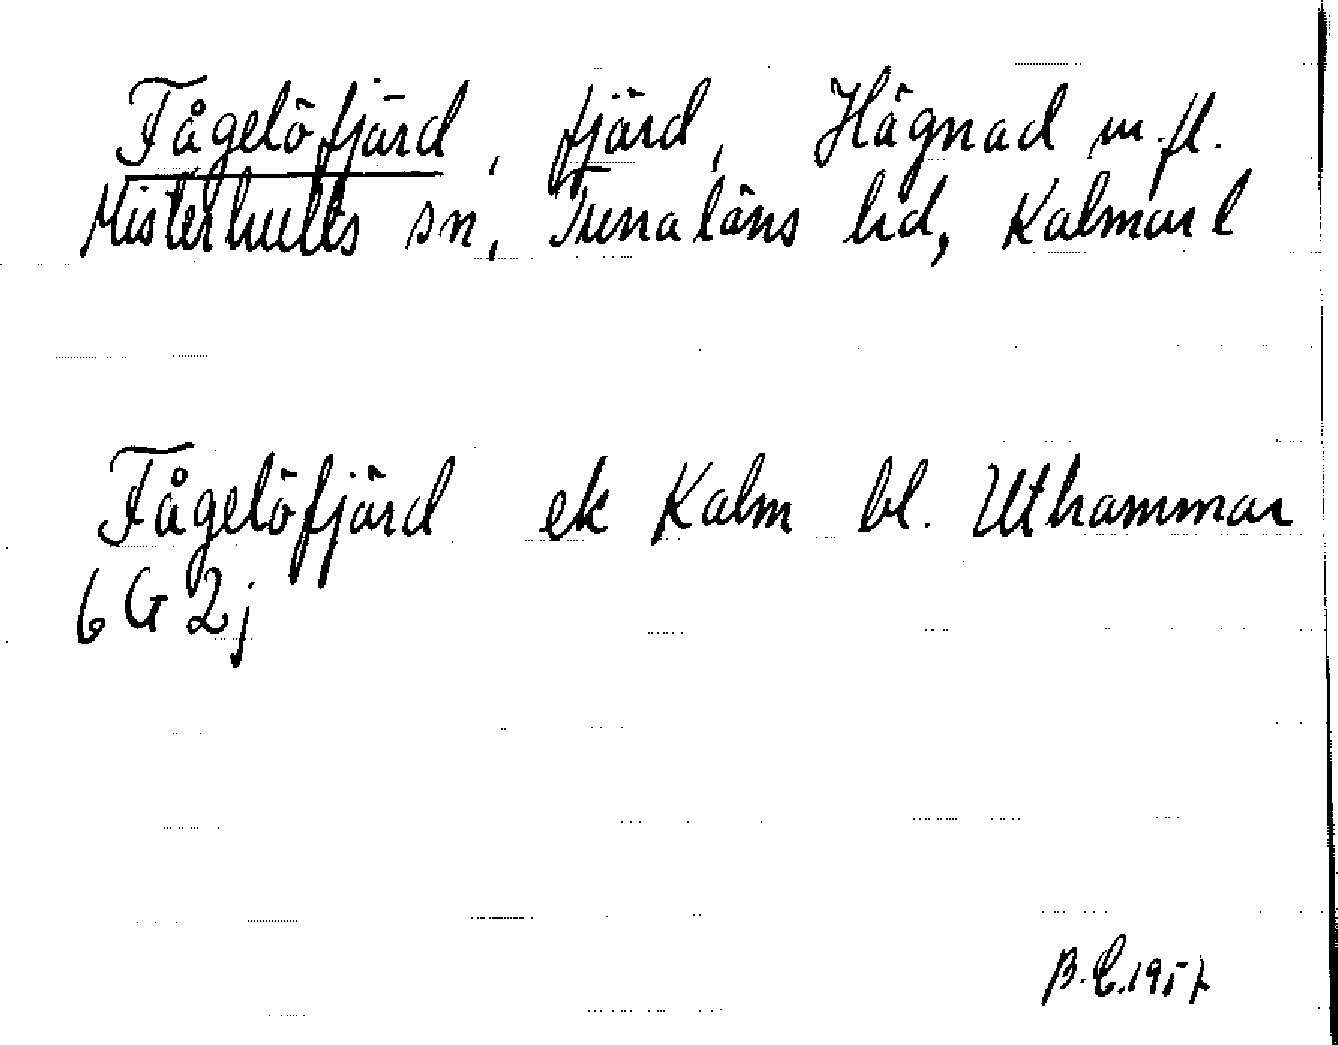 Fågelöfjärd, fjärd, Hägnad m.fl.
Misterhults sn, Tunaläns hd, Kalmar l
Fågelöfjärd ek Kalm bl. Uthammar
6 G 2j
B.E.1957